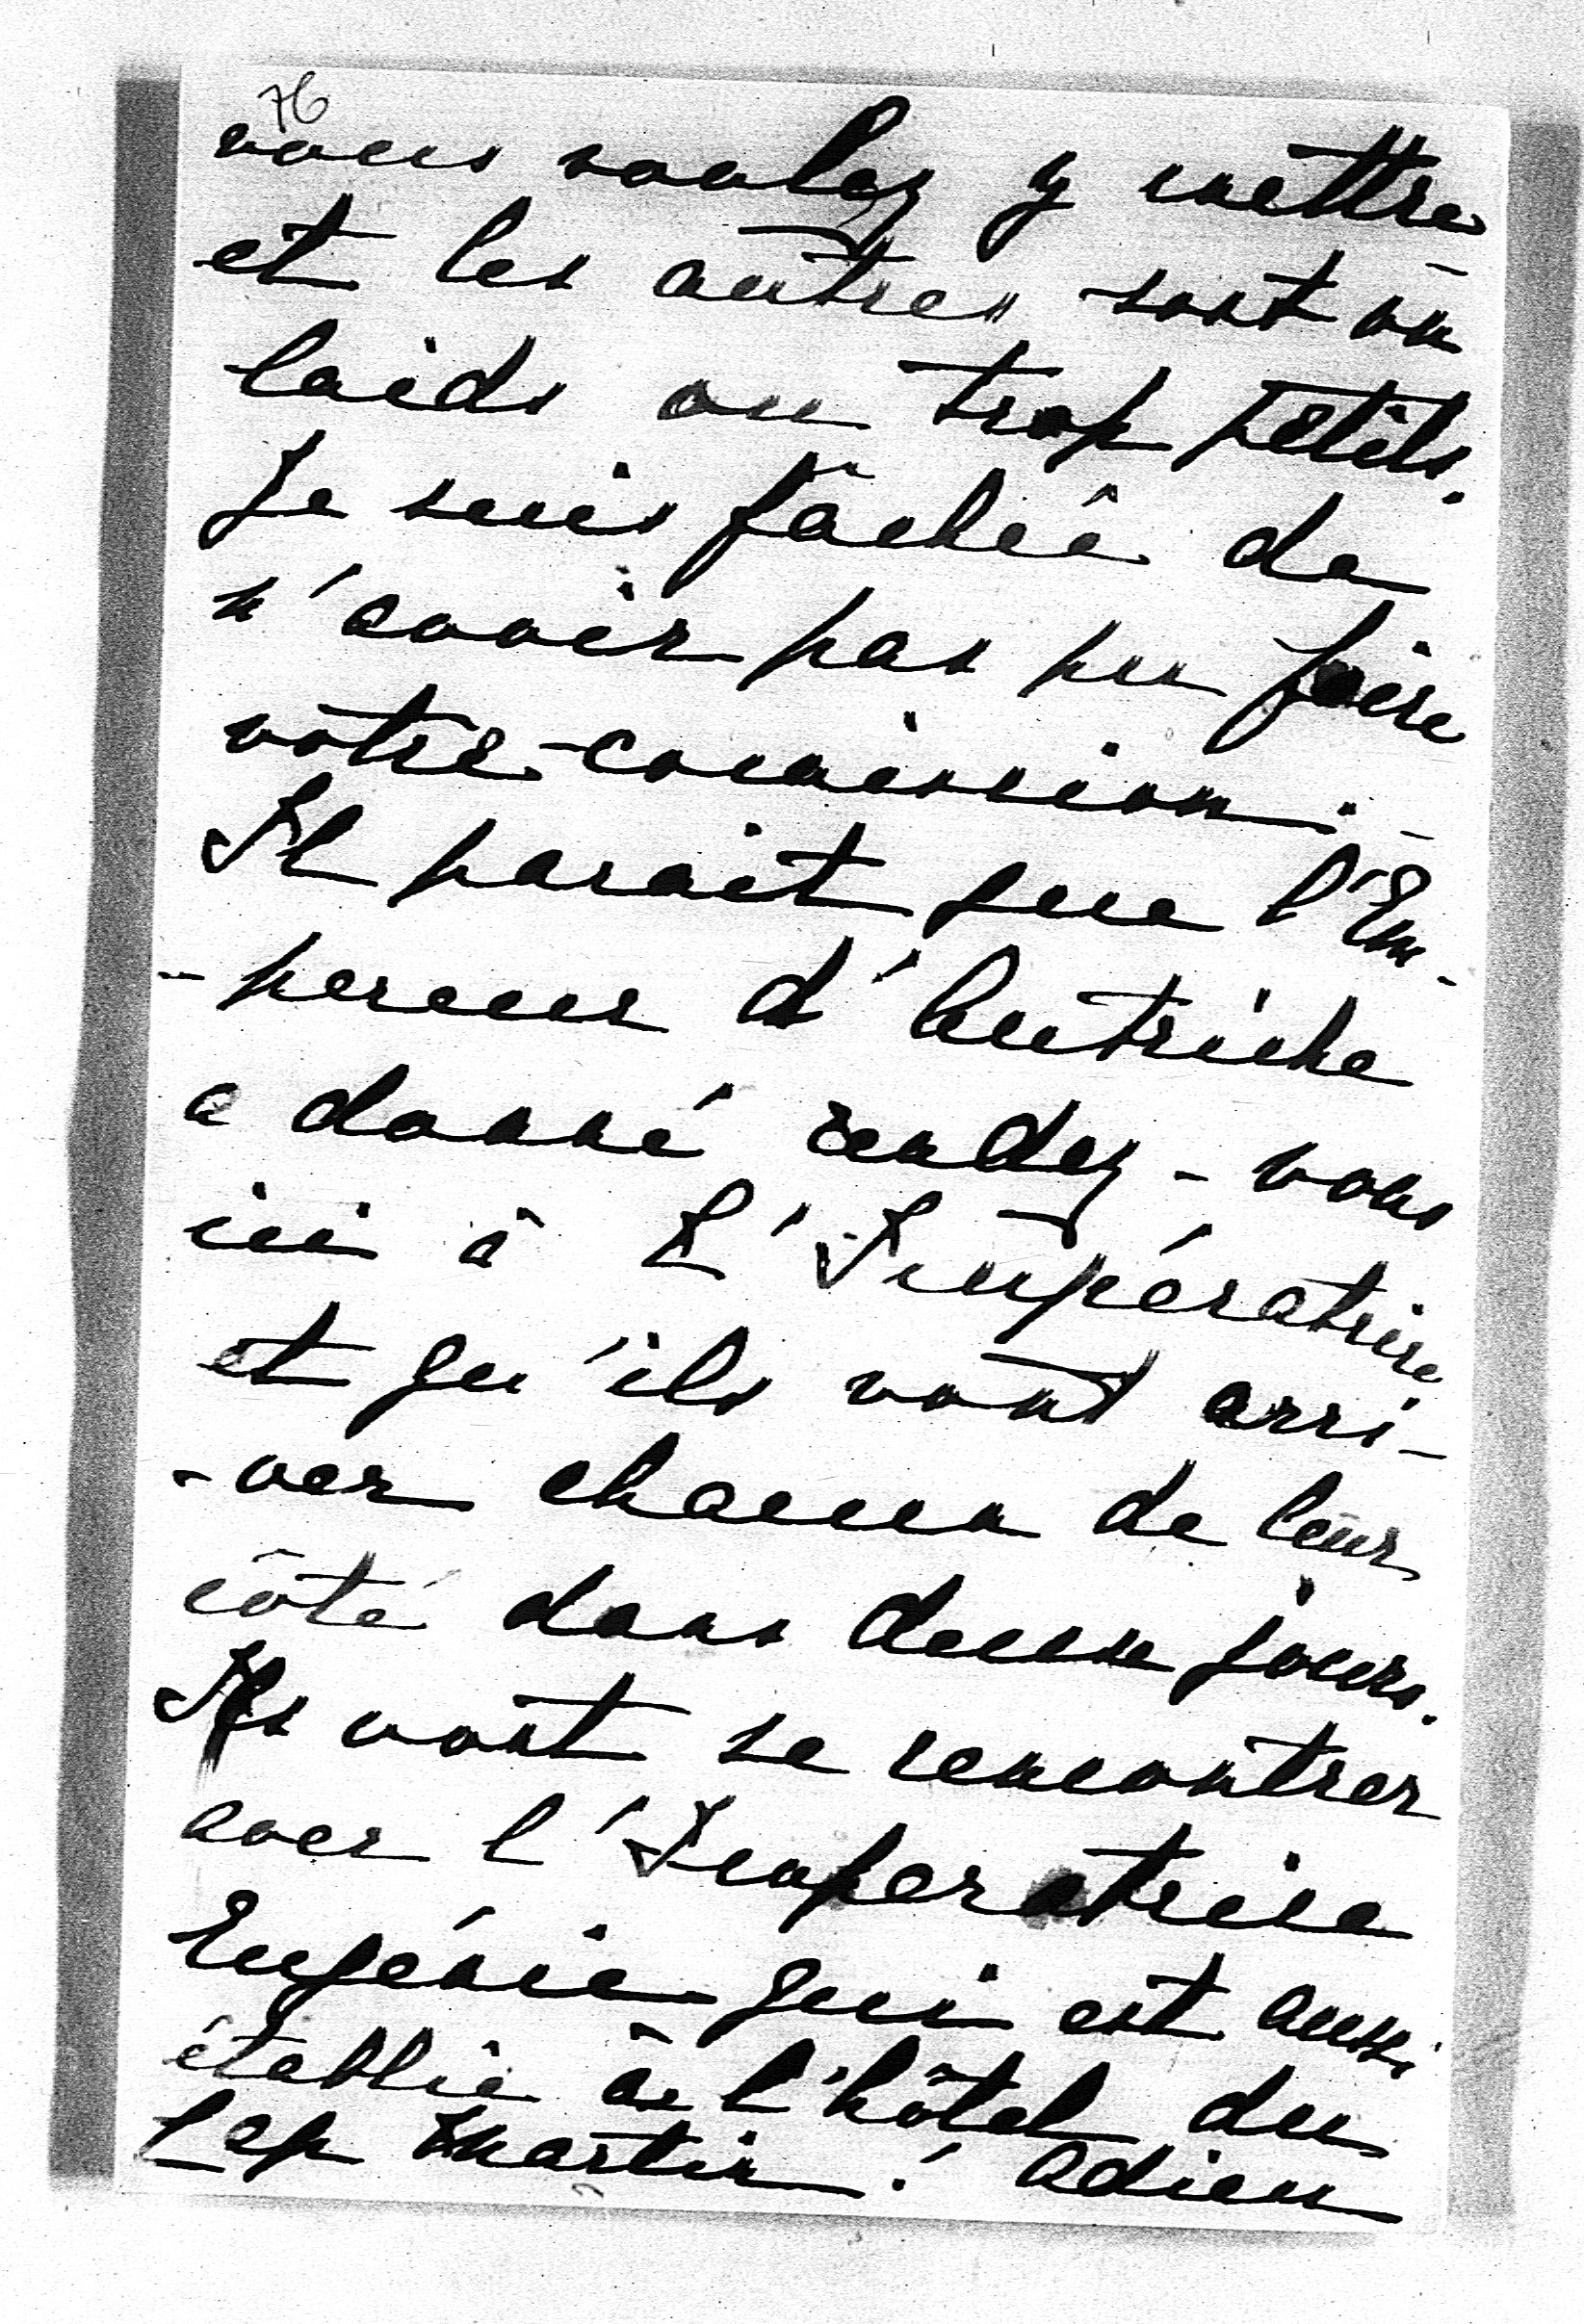 76
vous voulez y mettre
et les autres sont ou
laids ou trop petits.
Je suis fâchée de
n'avoir pas pu faire
votre commission.
Il parait que l'Em-
-pereur d'Autriche
a donné rendez-vous
ici à L'Impératrice
et qu'ils vont arri-
-ver chacun de leur
côté dans deux jours.
Ils vont se rencontrer
avec l'Imperatrice
Eugénie qui est aussi
établie à l'hôtel du
Cap Martin! Adieu